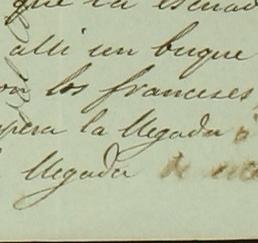 que la escuad
alli un buque
los franceses
espera la llegada
llegada de